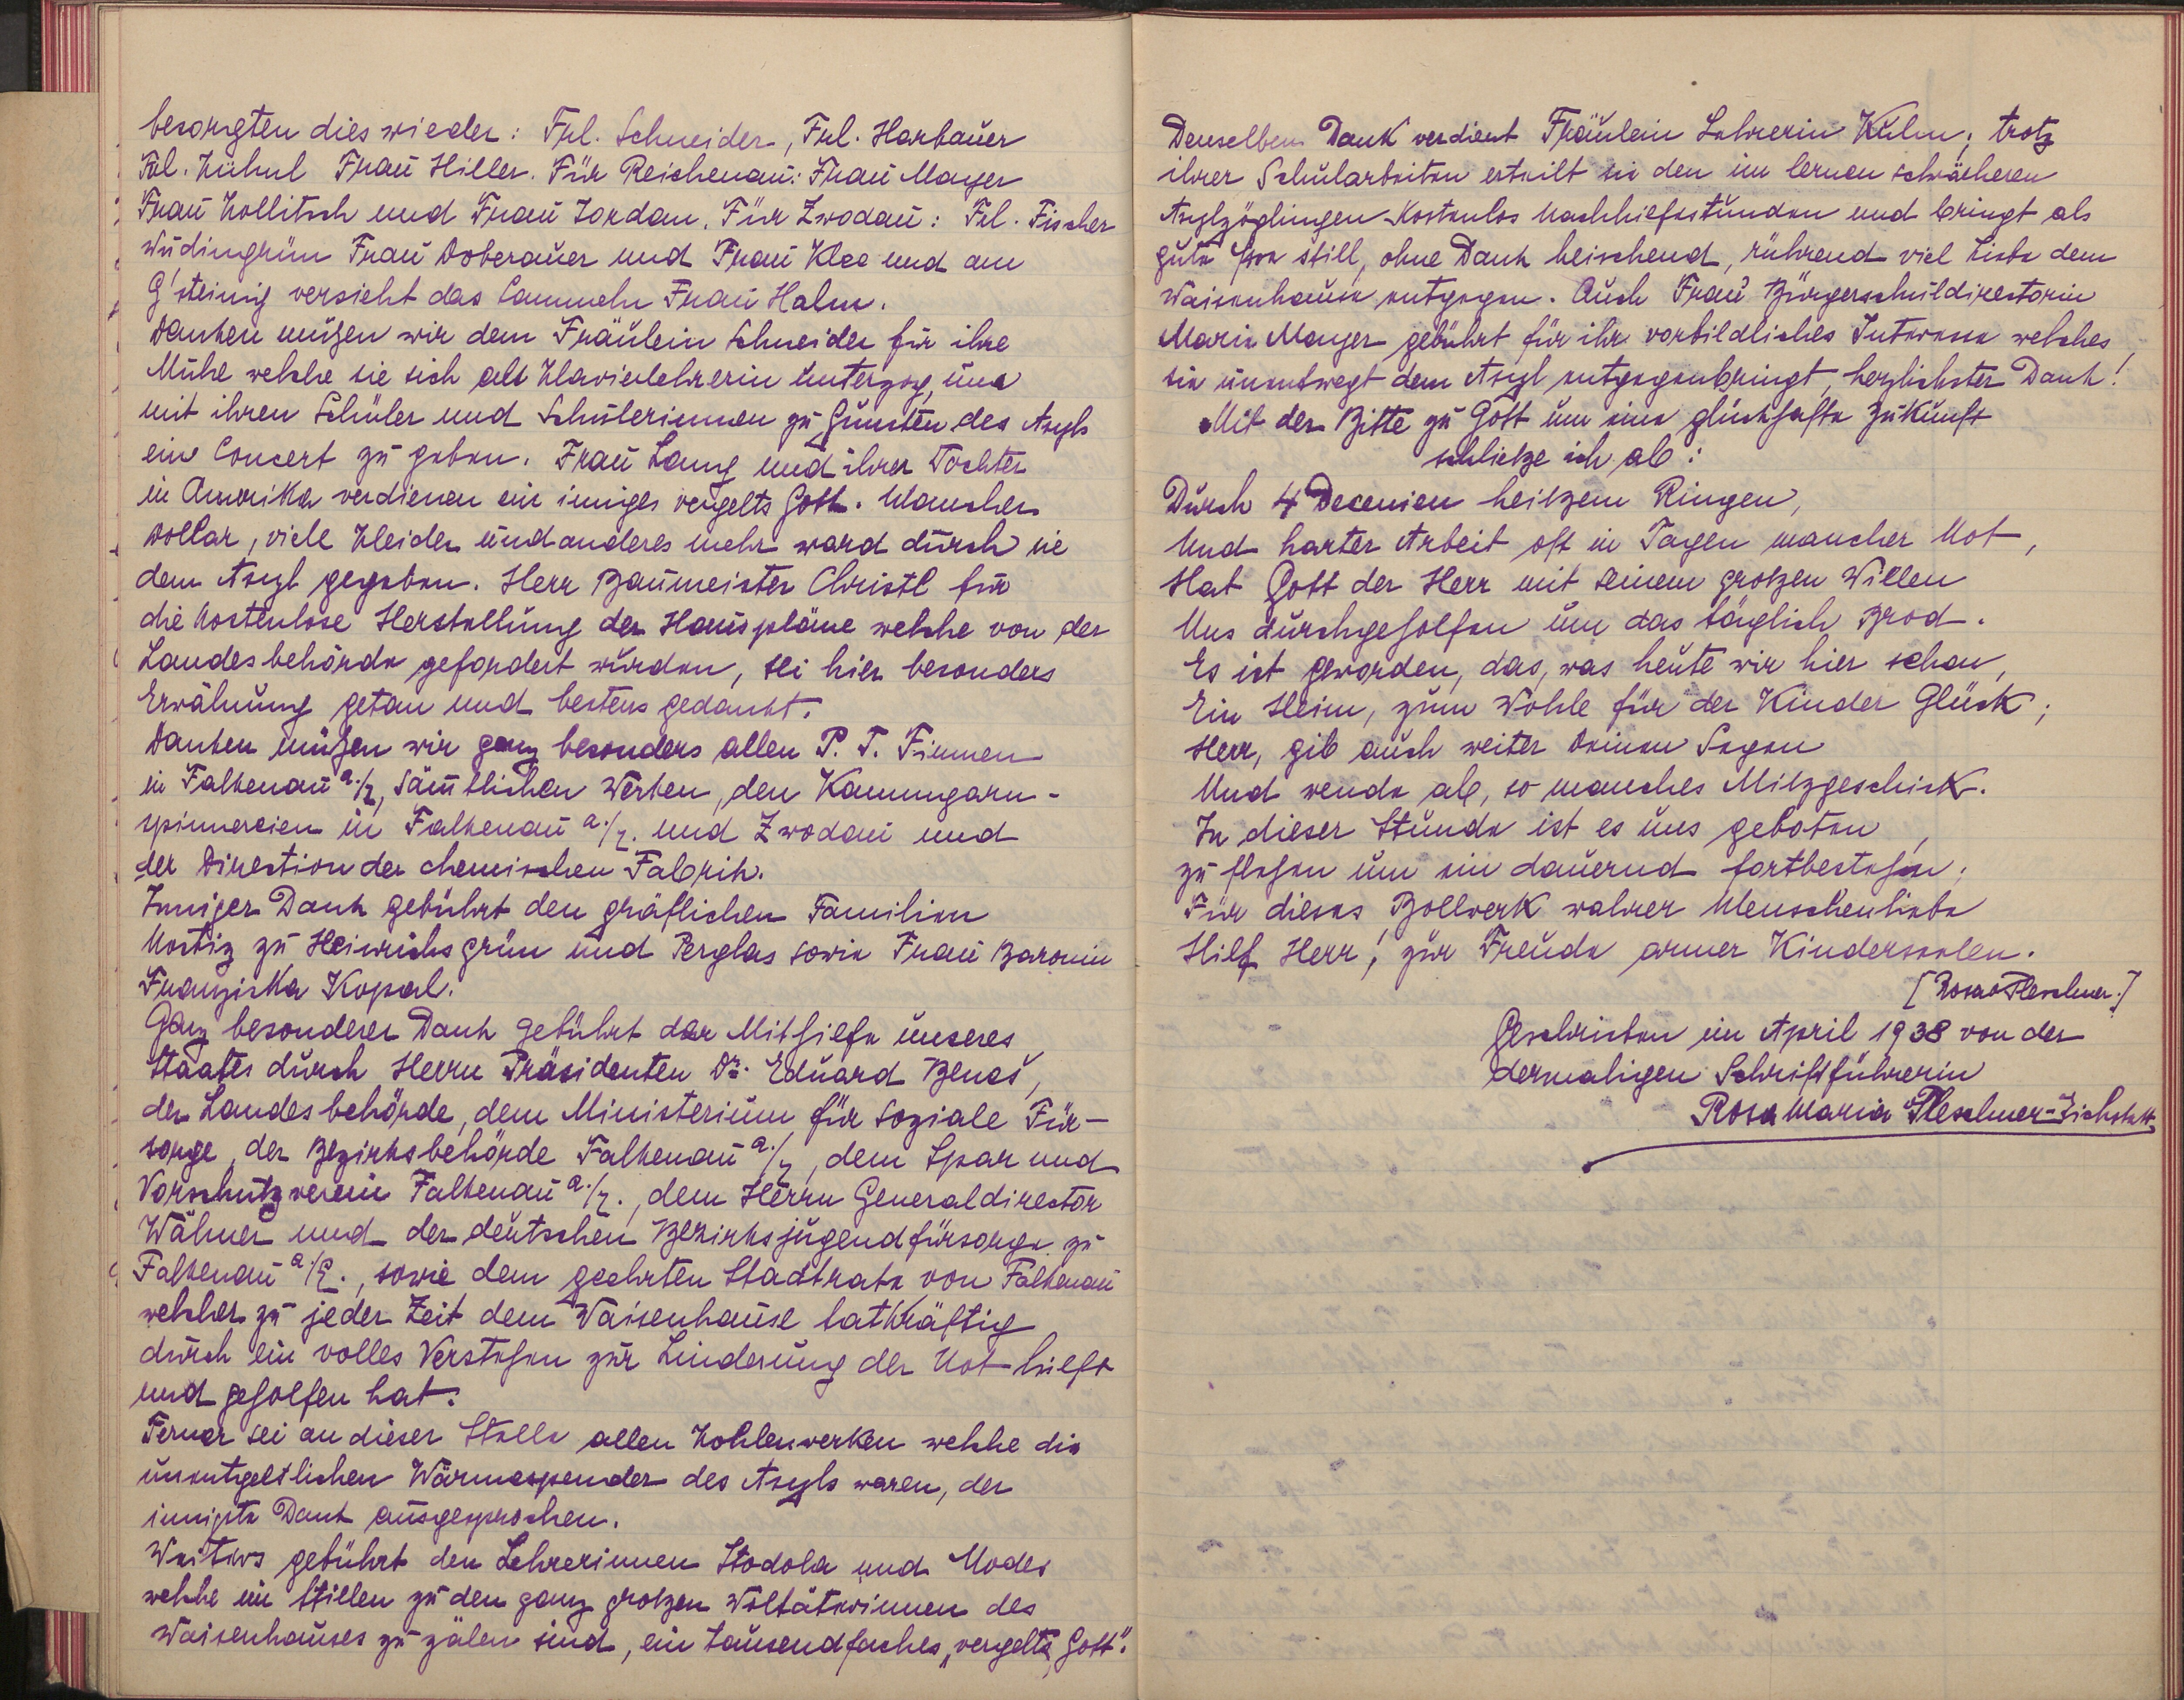 besorgten dies wieder: Frl. Schneider, Frl. Harbauer
Frl. Kühnl Frau Hiller. Für Reichenau: Frau Mayer
Frau Kollitsch und Frau Jordan. Für Zwodau: Frl. Fischer
Wudingrün Frau Doberauer und Frau Klee und am
G'steinig versieht das Sammeln Frau Halm.
Danken müßen wir dem Fräulein Schneider für ihre
Mühe welche sie sich als Klavierlehrerin unterzog, uns
mit ihren Schüler und Schülerinnen zu Gunsten des Asyls
ein Concert zu geben. Frau Lang und ihrer Tochter
in Amerika verdienen ein inniges vergelts Gott. Mancher
Dollar, viele Kleider und anderes mehr ward durch sie
dem Asyl gegeben. Herr Baumeister Christl für
die kostenlose Herstellung der Hauspläne welche von der
Landesbehörde gefordert wurden, sei hier besonders
Erwähnung getan und bestens gedankt.
Danken müßen wir ganz besonders allen P. T. Firmen
in Falkenau a./E, sämtlichen Werken, den Kammgarn-
spinnereien in Falkenau a./E. und Zwodau und
der Direction der chemischen Fabrik.
Inniger Dank gebührt den gräflichen Familien
Nostiz zu Heinrichsgrün und Perglas sowie Frau Baronin
Franziska Kopal.
Ganz besonderer Dank gebührt der Mithilfe unseres
Staates durch Herrn Präsidenten Dr. Eduard Beneš,
der Landesbehörde, dem Ministerium für soziale Für-
sorge, der Bezirksbehörde Falkenau a./E, dem Spar und
Vorschutzverein Falkenau a./E., dem Herrn Generaldirector
Wähner und der deutschen Bezirksjugendfürsorge zu
Falkenau a./E., sowie dem geehrten Stadtrate von Falkenau
welcher zu jeder Zeit dem Waisenhause tatkräftig
durch ein volles Verstehen zur Linderung der Not hielft
und geholfen hat.
Ferner sei an dieser Stelle allen Kohlenwerken welche die
unentgeltlichen Wärmespender des Asyls waren, der
innigste Dank ausgesprochen.
Weiters gebührt den Lehrerinnen Stodola und Modes
welche im Stillen zu den ganz grotzen Woltäterinnen des
Waisenhauses zu zälen sind, ein tausendfaches „vergelts Gott".
Denselben Dank verdient Fräulein Lehrerin Kulm; trotz
ihrer Schularbeiten erteilt sie den im lernen schwächeren
Asylzöglingen kostenlos Nachhiefestunden und bringt als
gute Fee still, ohne Dank heischend, rührend viel Liebe dem
Waisenhause entgegen. Auch Frau Bürgerschuldirectorin
Marie Mayer gebührt für ihr vorbildliches Interesse welches
sie unentwegt dem Asyl entgegenbringt, herzlichster Dank!
Mit der Bitte zu Gott um eine glückhafte Zukunft
schlietze ich ab:
Durch 4 Decenien heitzem Ringen,
Und harter Arbeit oft in Tagen mancher Not,
Hat Gott der Herr mit seinem grotzen Willen
Uns durchgeholfen um das täglich Brod.
Es ist geworden, das, was heute wir hier schau,
Ein Heim, zum Wohle für der Kinder Glück;
Herr, gib auch weiter Deinen Segen
Und wende ab, so manches Mitzgeschick.
In dieser Stunde ist es uns geboten,
zu flehen um ein dauernd fortbestehn;
Für dieses Bollwerk wahrer Menschenliebe
Hilf Herr, zur Freude armer Kinderseelen.
[Rosa Pleschner.]
Geschrieben im April 1938 von der
dermaligen Schriftführerin
Rosa Maria Pleschner-